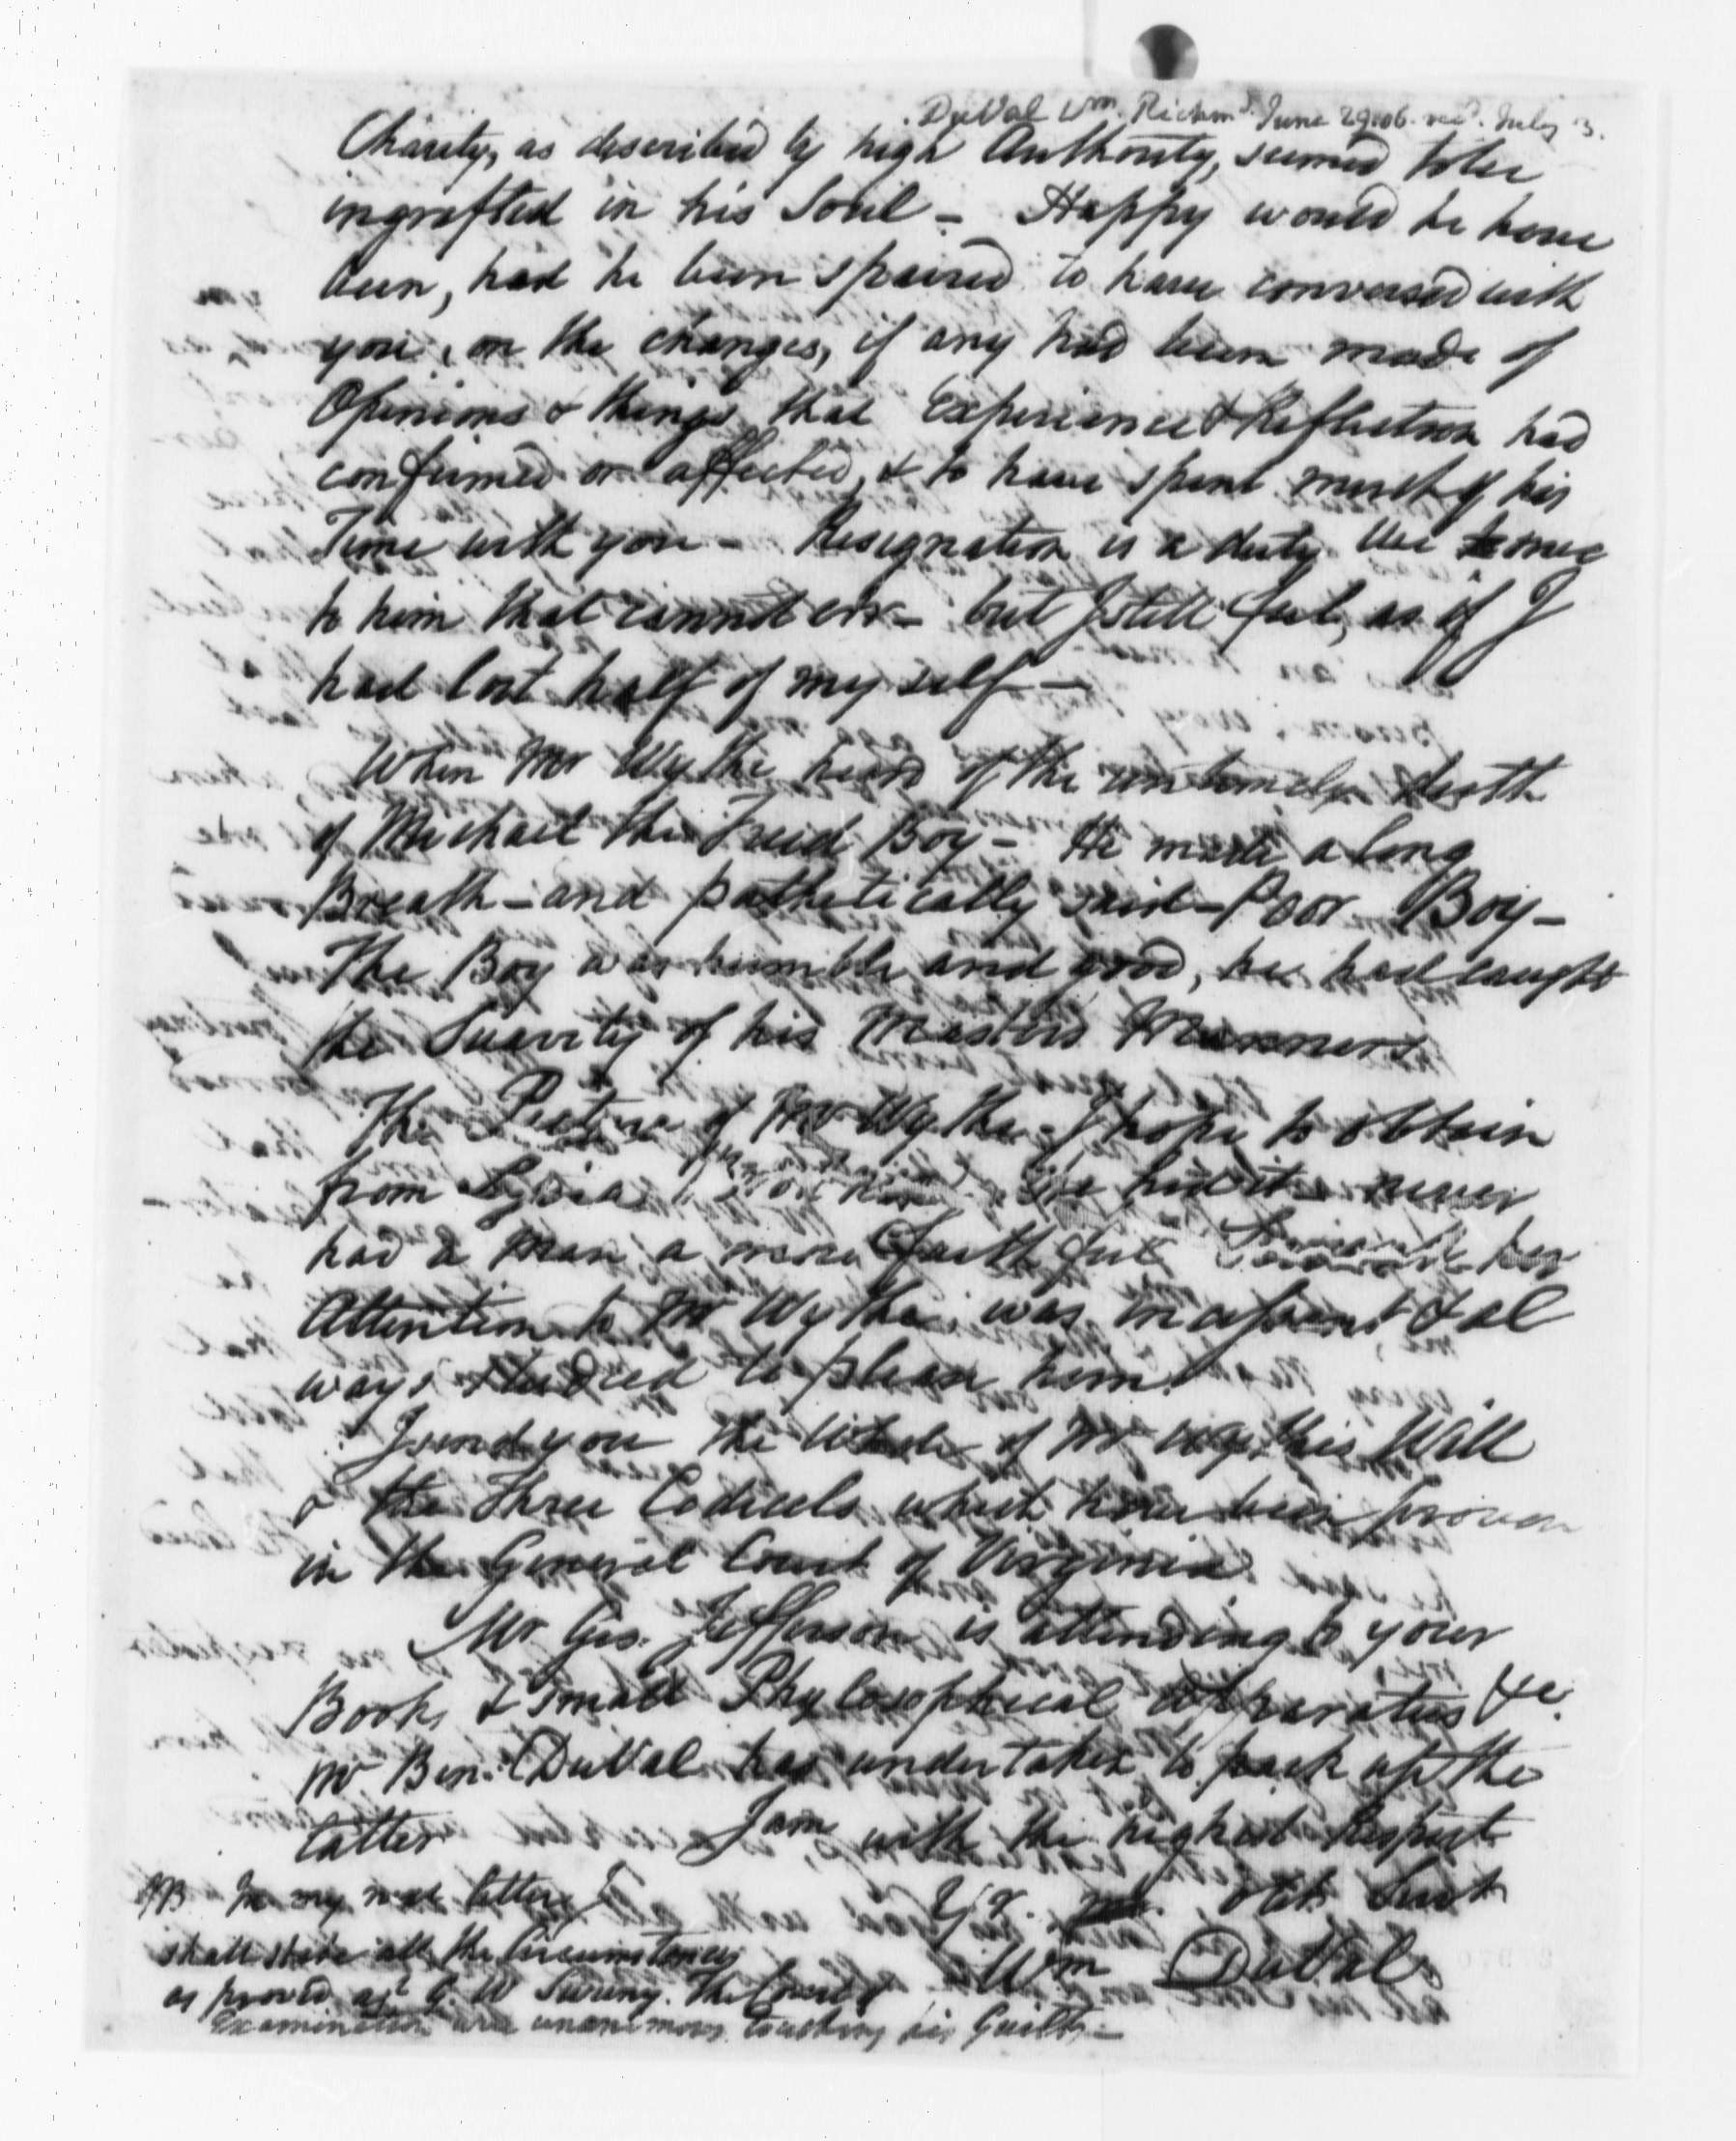 DuVal Wm. Richmd. June 29. 06. recd. July 3.
Charity, as described by high Authority, seemed to be
ingrafted in his Soul – Happy would he have
been, had he been spaired to have conversed with
you, on the changes, if any had been made of
Opinions & things that Experience & Reflection had
confirmed or affected, & to have spent much of his
Time with you – Resignation is a duty we owe
to him that cannot err – but I still feel, as if I
had lost half of my self –
When Mr Wythe heard of the untimely death
of Michael the Freed Boy – He made a long
Breath – and pathetically said – Poor Boy –
The Boy was humble and good, he had caught
the Suavity of his Masters Manners.
The Picture of Mr Wythe I hope to obtain
from Lydia never
had a Man a more faithful Servant her
Attention to Mr Wythe was incessant & al
ways studied to please him.
I send you the whole of Mr Wythes Will
& the three Codicels which have been proven
in the General Court of Virginia.
Mr Geo. Jefferson is attending to your
Books & small Phylosophical apparatus &c.
Mr Ben: DuVal has undertaken to pack up the
latter I am with the highest Respect
Yr. obt. Servt
Wm DuVal
NB In my next letter I
shall state all the Circumstances
as proved agt G. W Sweny. The Court of
Examination were unanimous touching his Guilt –